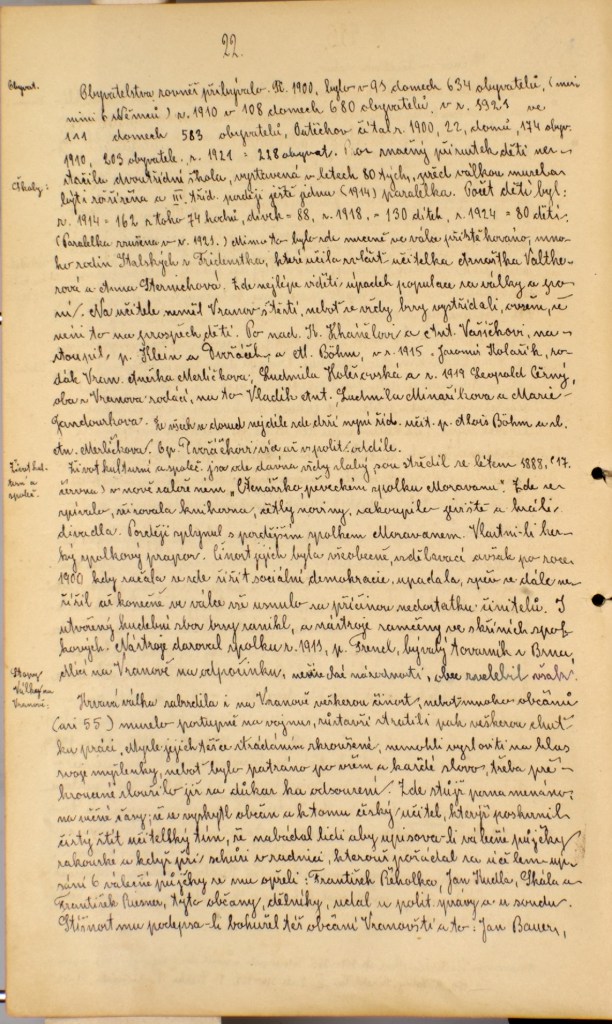 22.
Obyvat.
Obyvatelstva rovněž přibývalo. R. 1900, bylo v 93 domech 634 obyvatelů, (mezi
nimi 6 Němců) r. 1910 v 108 domech 680 obyvatelů, v r. 1921 ve
111 domech 583 obyvatelů, Outěchov čítal r. 1900, 22, domů, 174 obyv.
1910, 203 obyvatele. r. 1921 = 228 obyvat. Pro značný přírustek dětí nes-
Školy:
tačila dvoutřídní škola, vystavená v letech 80 tých, před válkou musela
býti rozšířena a III. tříd. později ještě jednu (1914) paralelka. Počet dětí byl:
r. 1914 = 162 z toho 74 hochů, dívek = 88, r. 1918. = 130 dítek, r. 1924 = 80 dětí.
(Paralelka zrušena v r. 1921.) Mimo to bylo zde mnoho ve válce přistěhováno, mno-
ho rodin Italských z Tridentska, které učila zvlášť učitelka Arnoštka Valthe-
rová a Anna Sternichová. Zde nejlépe viděti úpadek populace za války a po
ní. Na učitele neměl Vranov štěstí, neboť se vždy brzy vystřídali, ovšem, že
není to na prospěch dětí. Po nad. K. Khánilovi a Ant. Vašíčkovi, na-
stoupil, p. Klein a Dvořáček, a Al. Böhm, v r. 1915. Jaromír Kolařík, ro-
dák Vran. Anežka Merličkova, Ludmila Kolčavská a r. 1919 Leopold Černý,
oba z Vranova rodáci, na to Vladík Ant. Ludmila Minaříkova a Marie
Jandourkova. Ze všech se dosud nejdéle zde drží nyní říd. učit. p. Alois Böhm a sl.
An. Merličkova. Ep. Dvořáčkovi více až v polit. oddíle.
Život kul-
turní a
společ.
Život kulturní a společ. jsa ode dávna vždy slabý, soustředil se létem 1888, (17.
června) v nově založeném, „Čtenářsko, pěveckém spolku Moravanu". Zde se
zpívalo, zřizovala knihovna, četly noviny, zakoupilo jeviště a hráli
divadla. Později splynul s pozdějším spolkem Moravanem. Vlastní-li hez-
ký spolkový prapor. Činost jejich byla všeobecně, vzdělávací avšak po roce
1900 kdy začala se zde šířit sociální demokracie, upadala, zpěv se dále ne
šířil až konečně ve válce vše usnulo za příčinou nedostatku činitelů. I
utvořený hudební sbor brzy zanikl, a nástroje zamčeny ve skříních spol-
kových. Nástroje daroval spolku r. 1913, p. Frenel, bývalý továrník z Brna,
Stavy
války na
Vranově:
dlíci na Vranově na odpočinku, nežiže dáč národností, obec zvelebil však.
Krvavá válka zabrzdila i na Vranově veškerou činost, neboť mnoho občanů
(asi 55) muselo postupně na vojnu, zůstavší ztratili pak veškerou chuť
ku práci. Mysle jejich těžce strádáním zkroušené, nemohli vysloviti na hlas
svoje myšlenky, neboť bylo pátráno po všem a každé slovo, třeba pře-
kroucené sloužilo již za důkaz ka odsouzení. Zde stůjž poznamenáno,
na věčné časy; že se vyskytl občan a k tomu český učitel, kterýž poskvrnil
čistý štít učitelský tím, že nabádal lidi aby upisova-li válečné půjčky
rakouské a když při schůzi v radnici, kterouž pořádal za účelem up-
sání 6 válečné půjčky se mu opřeli: František Řeholka, Jan Kudla, Skála a
František Riesner, tyto občany, dělníky, udal u polit. správy a u soudu.
Stížnost mu podepsa-li bohužel též občani Vranovští a to: Jan Bauer,